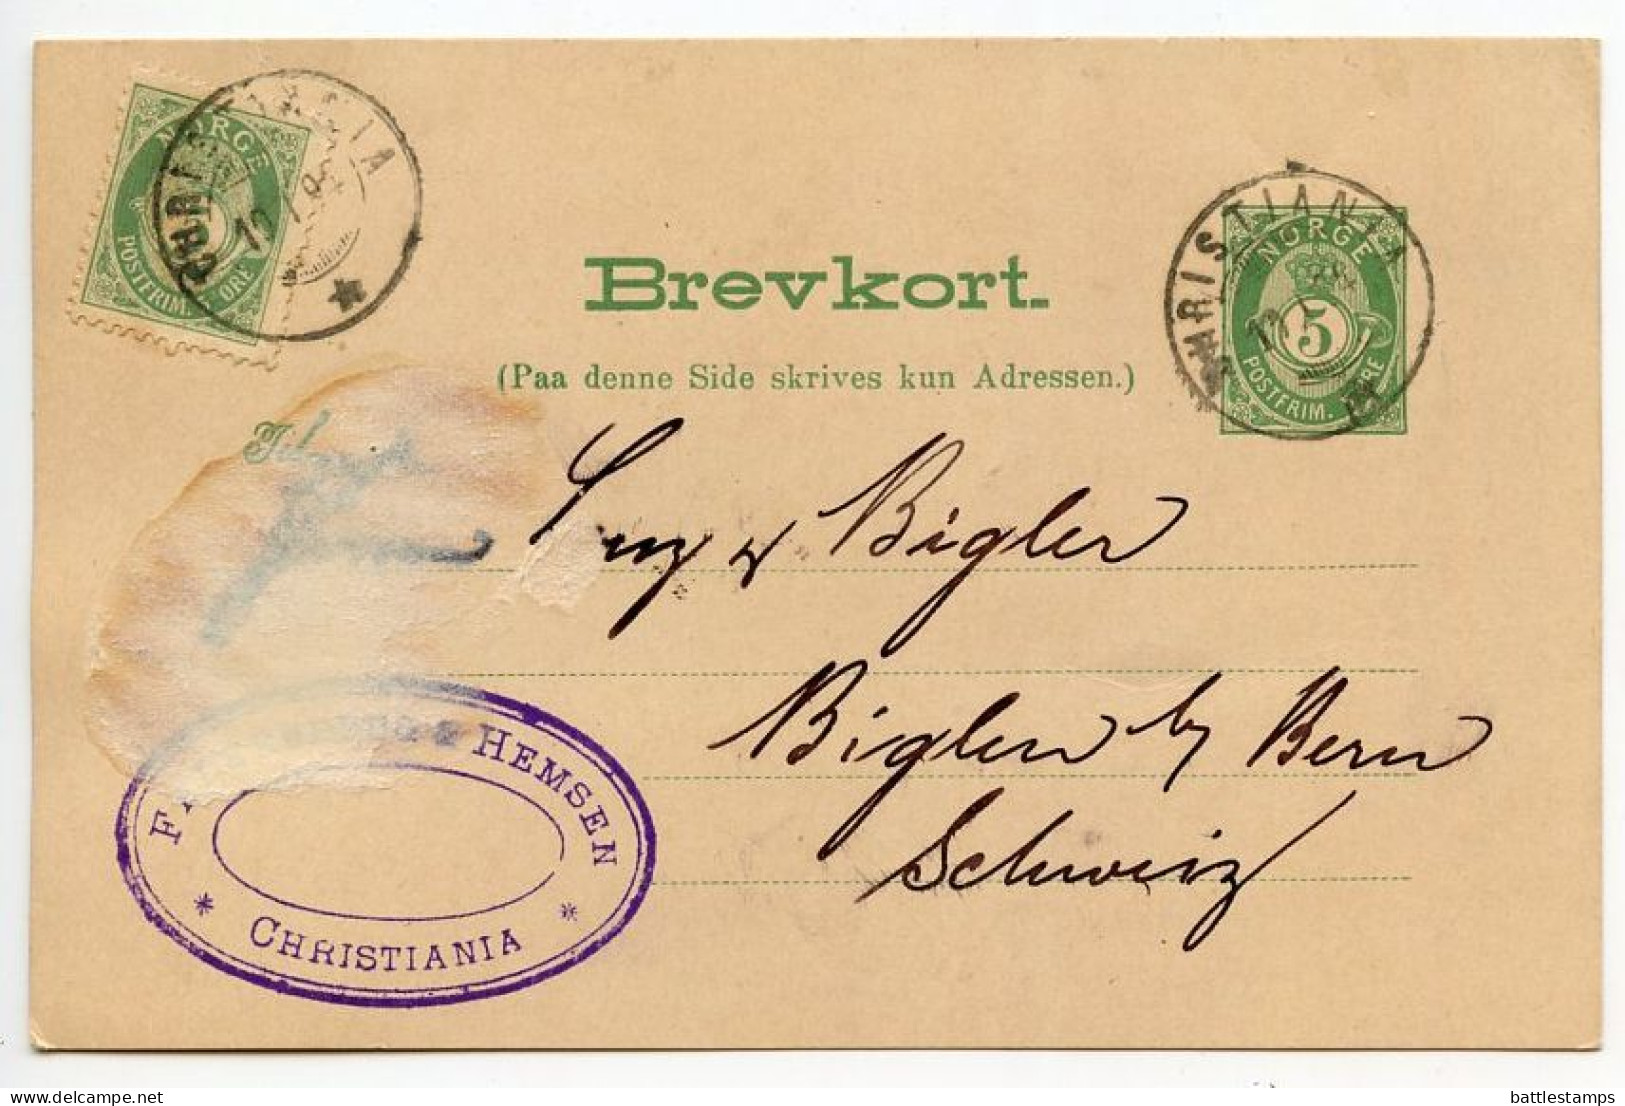 NORGE
POSTFRIM. ØRE
CHRISTIANIA
Brevkort.
(Paa denne Side skrives kun Adressen.)
NORGE
5
POSTFRIM. ØRE
CHRISTIANIA
Til
Bigler
Biglen by Bern
Schweiz
& HEMSEN
CHRISTIANIA
battlestamps